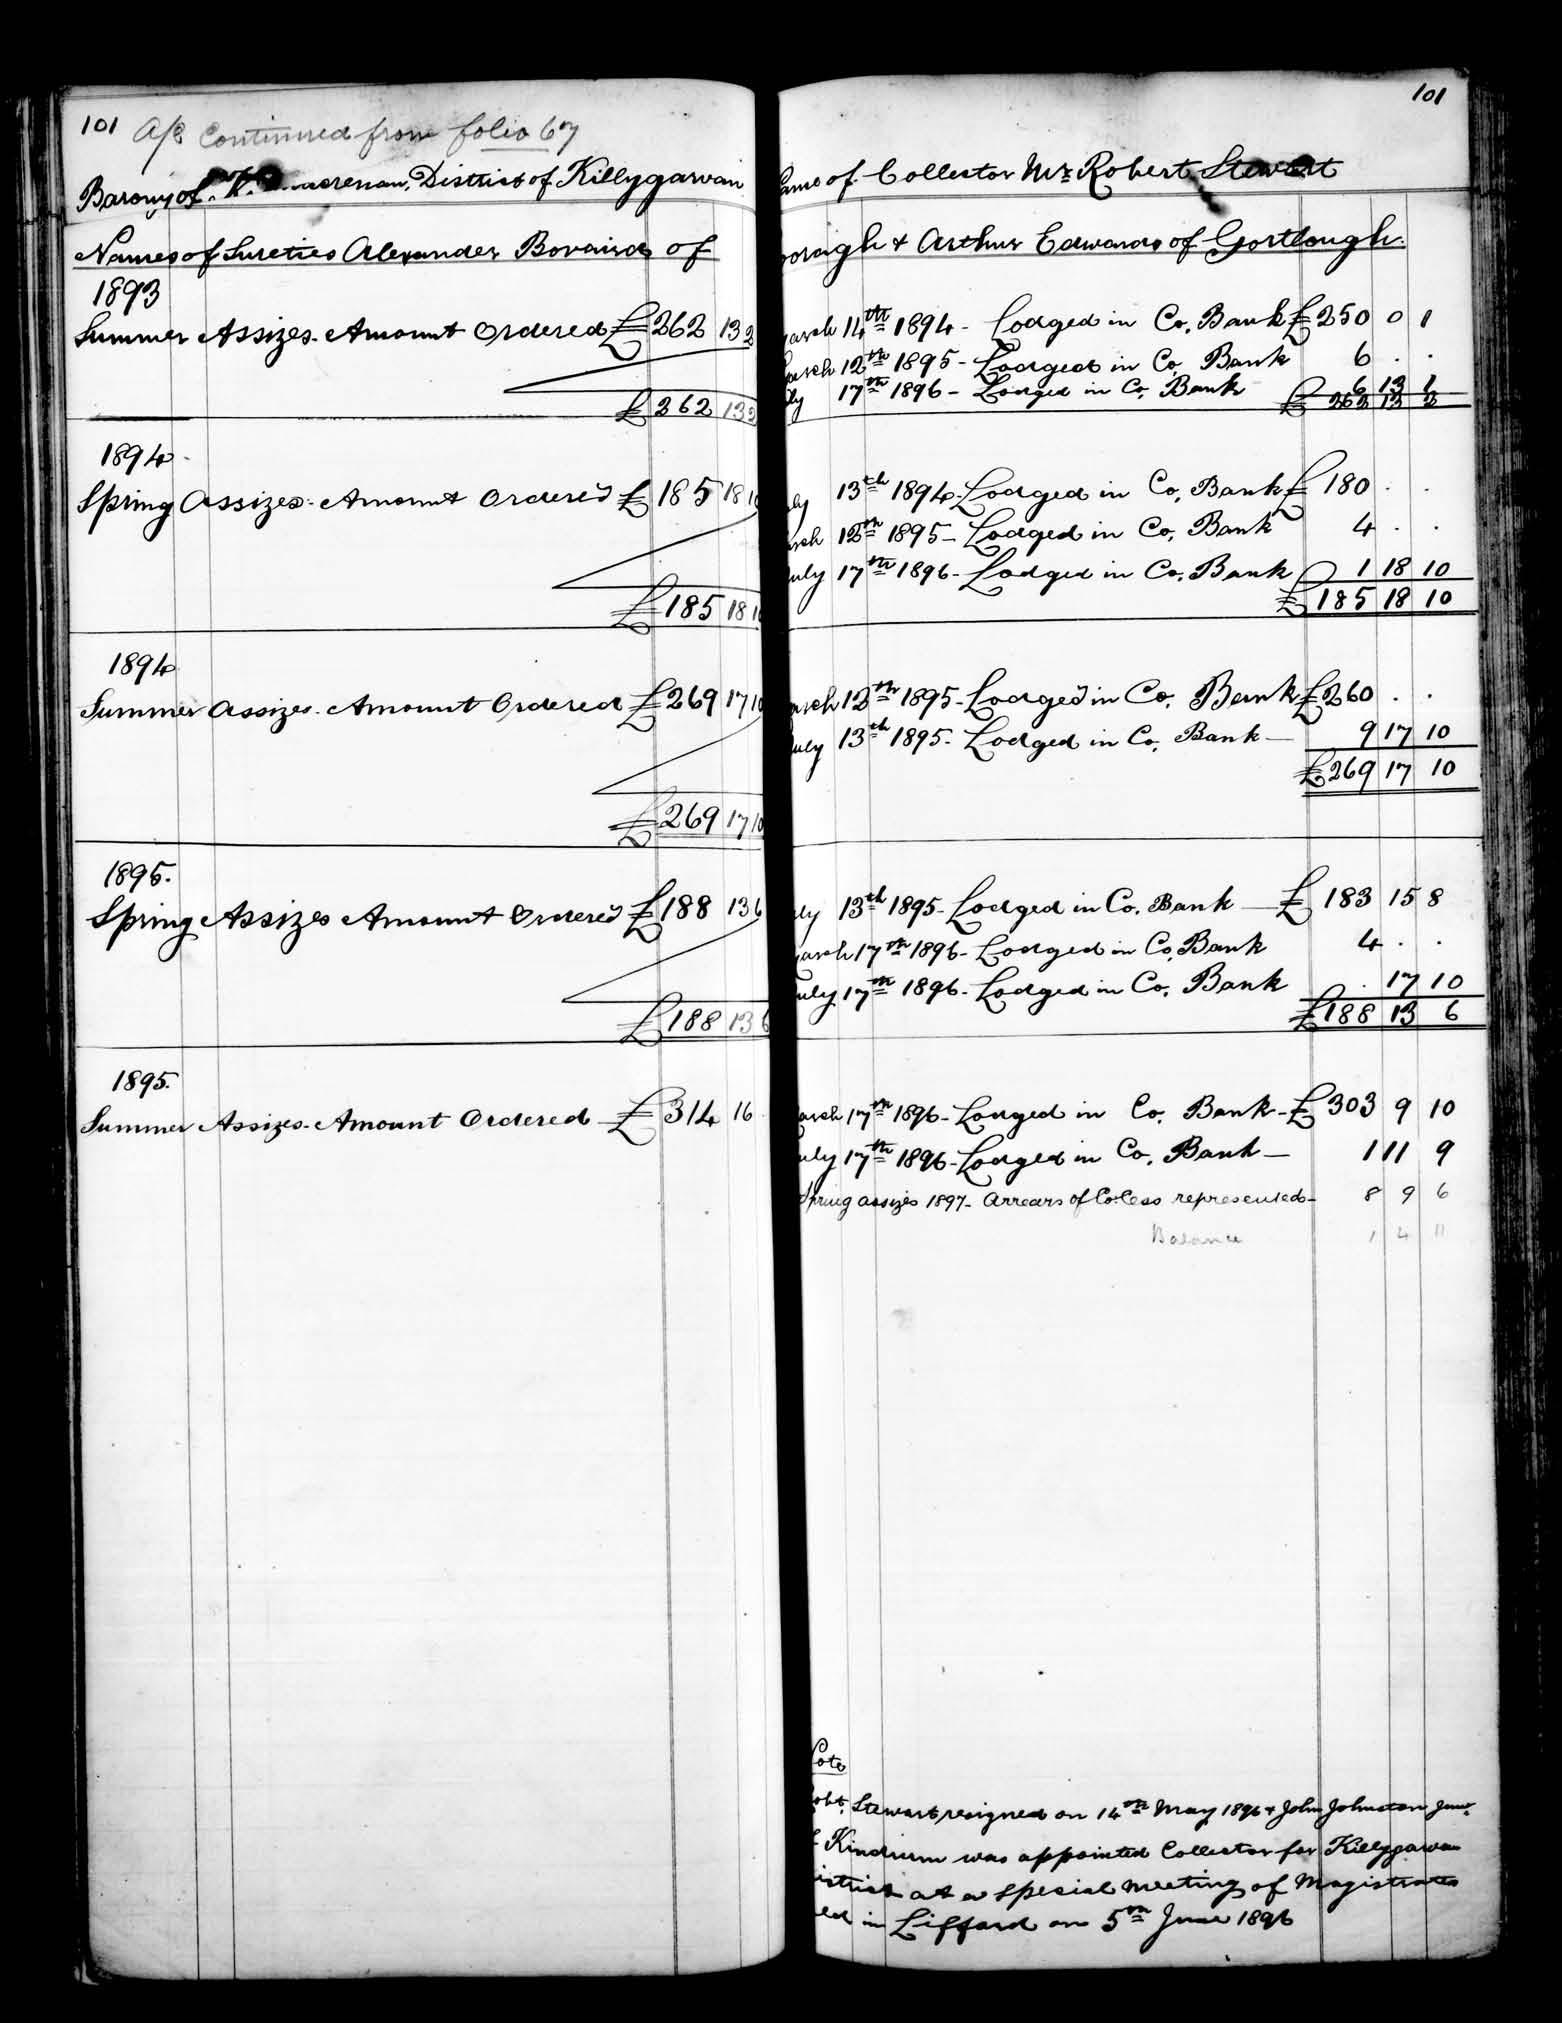 101 A/c Continued from folio 67
Barony of K. District of Killygarvan
Names of Sureties Alexander Bovaird of
1893
Summer Assizes. Amount Ordered £262 13 2
£262 13 2
1894
Spring Assizes. Amount Ordered £185 18 10
£185 18 10
1894
Summer Assizes. Amount Ordered £269 17 10
£269 17 10
1895.
Spring Assizes Amount Ordered £188 13 6
£188 13 6
1895.
Summer Assizes. Amount Ordered £314 16
101
ame of Collector Mr Robert Stewart
oraigh & Arthur Edwards of Gortlough.
arch 14th 1894 - Lodged in Co. Bank £250 0 1
arch 12th 1895 - Lodged in Co. Bank 6 . .
ly 17th 1896 - Lodged in Co. Bank 6 13 1
£ 262 13 2
ly 13th 1894. Lodged in Co. Bank £180 . .
arch 12th 1895 - Lodged in Co. Bank 4 . .
uly 17th 1896 - Lodged in Co. Bank 1 18 10
£185 18 10
arch 12th 1895 - Lodged in Co. Bank £260 . .
uly 13th 1895 - Lodged in Co. Bank — 9 17 10
£269 17 10
ly 13th 1895 - Lodged in Co. Bank — £183 15 8
arch 17th 1896 - Lodged in Co. Bank 4 . .
uly 17th 1896 - Lodged in Co. Bank . 17 10
£188 13 6
arch 17th 1896 - Lodged in Co. Bank - £303 9 10
uly 17th 1896 - Lodged in Co. Bank — 1 11 9
Spring assizes 1897 - Arrears of Co. Cess represented - 8 9 6
Balance 1 4 11
ote
obt. Stewart resigned on 14th May 1896 & John Johnston Junr.
f Kindrum was appointed Collector for Killygarvan
istrict at a special meeting of Magistrates
eld in Lifford on 5th June 1896